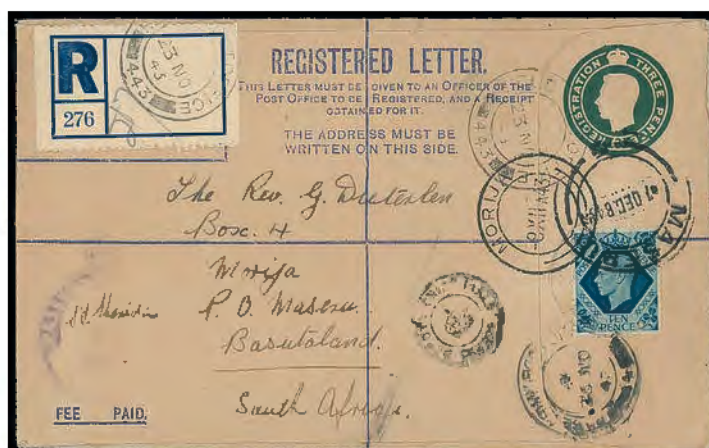 R
276
REGISTERED LETTER.
THIS LETTER MUST BE GIVEN TO AN OFFICER OF THE
POST OFFICE TO BE REGISTERED, AND A RECEIPT
OBTAINED FOR IT.
THE ADDRESS MUST BE
WRITTEN ON THIS SIDE.
REGISTRATION THREE PENCE
443
23 NO
43
443
23 NO
MORIJA
MASERU
1 DEC
The Rev. G. Dieterlen
Box. 4
Morija
P. O. Maseru
Basutoland.
South Africa.
TEN
PENCE
FEE PAID.
23 NO
43